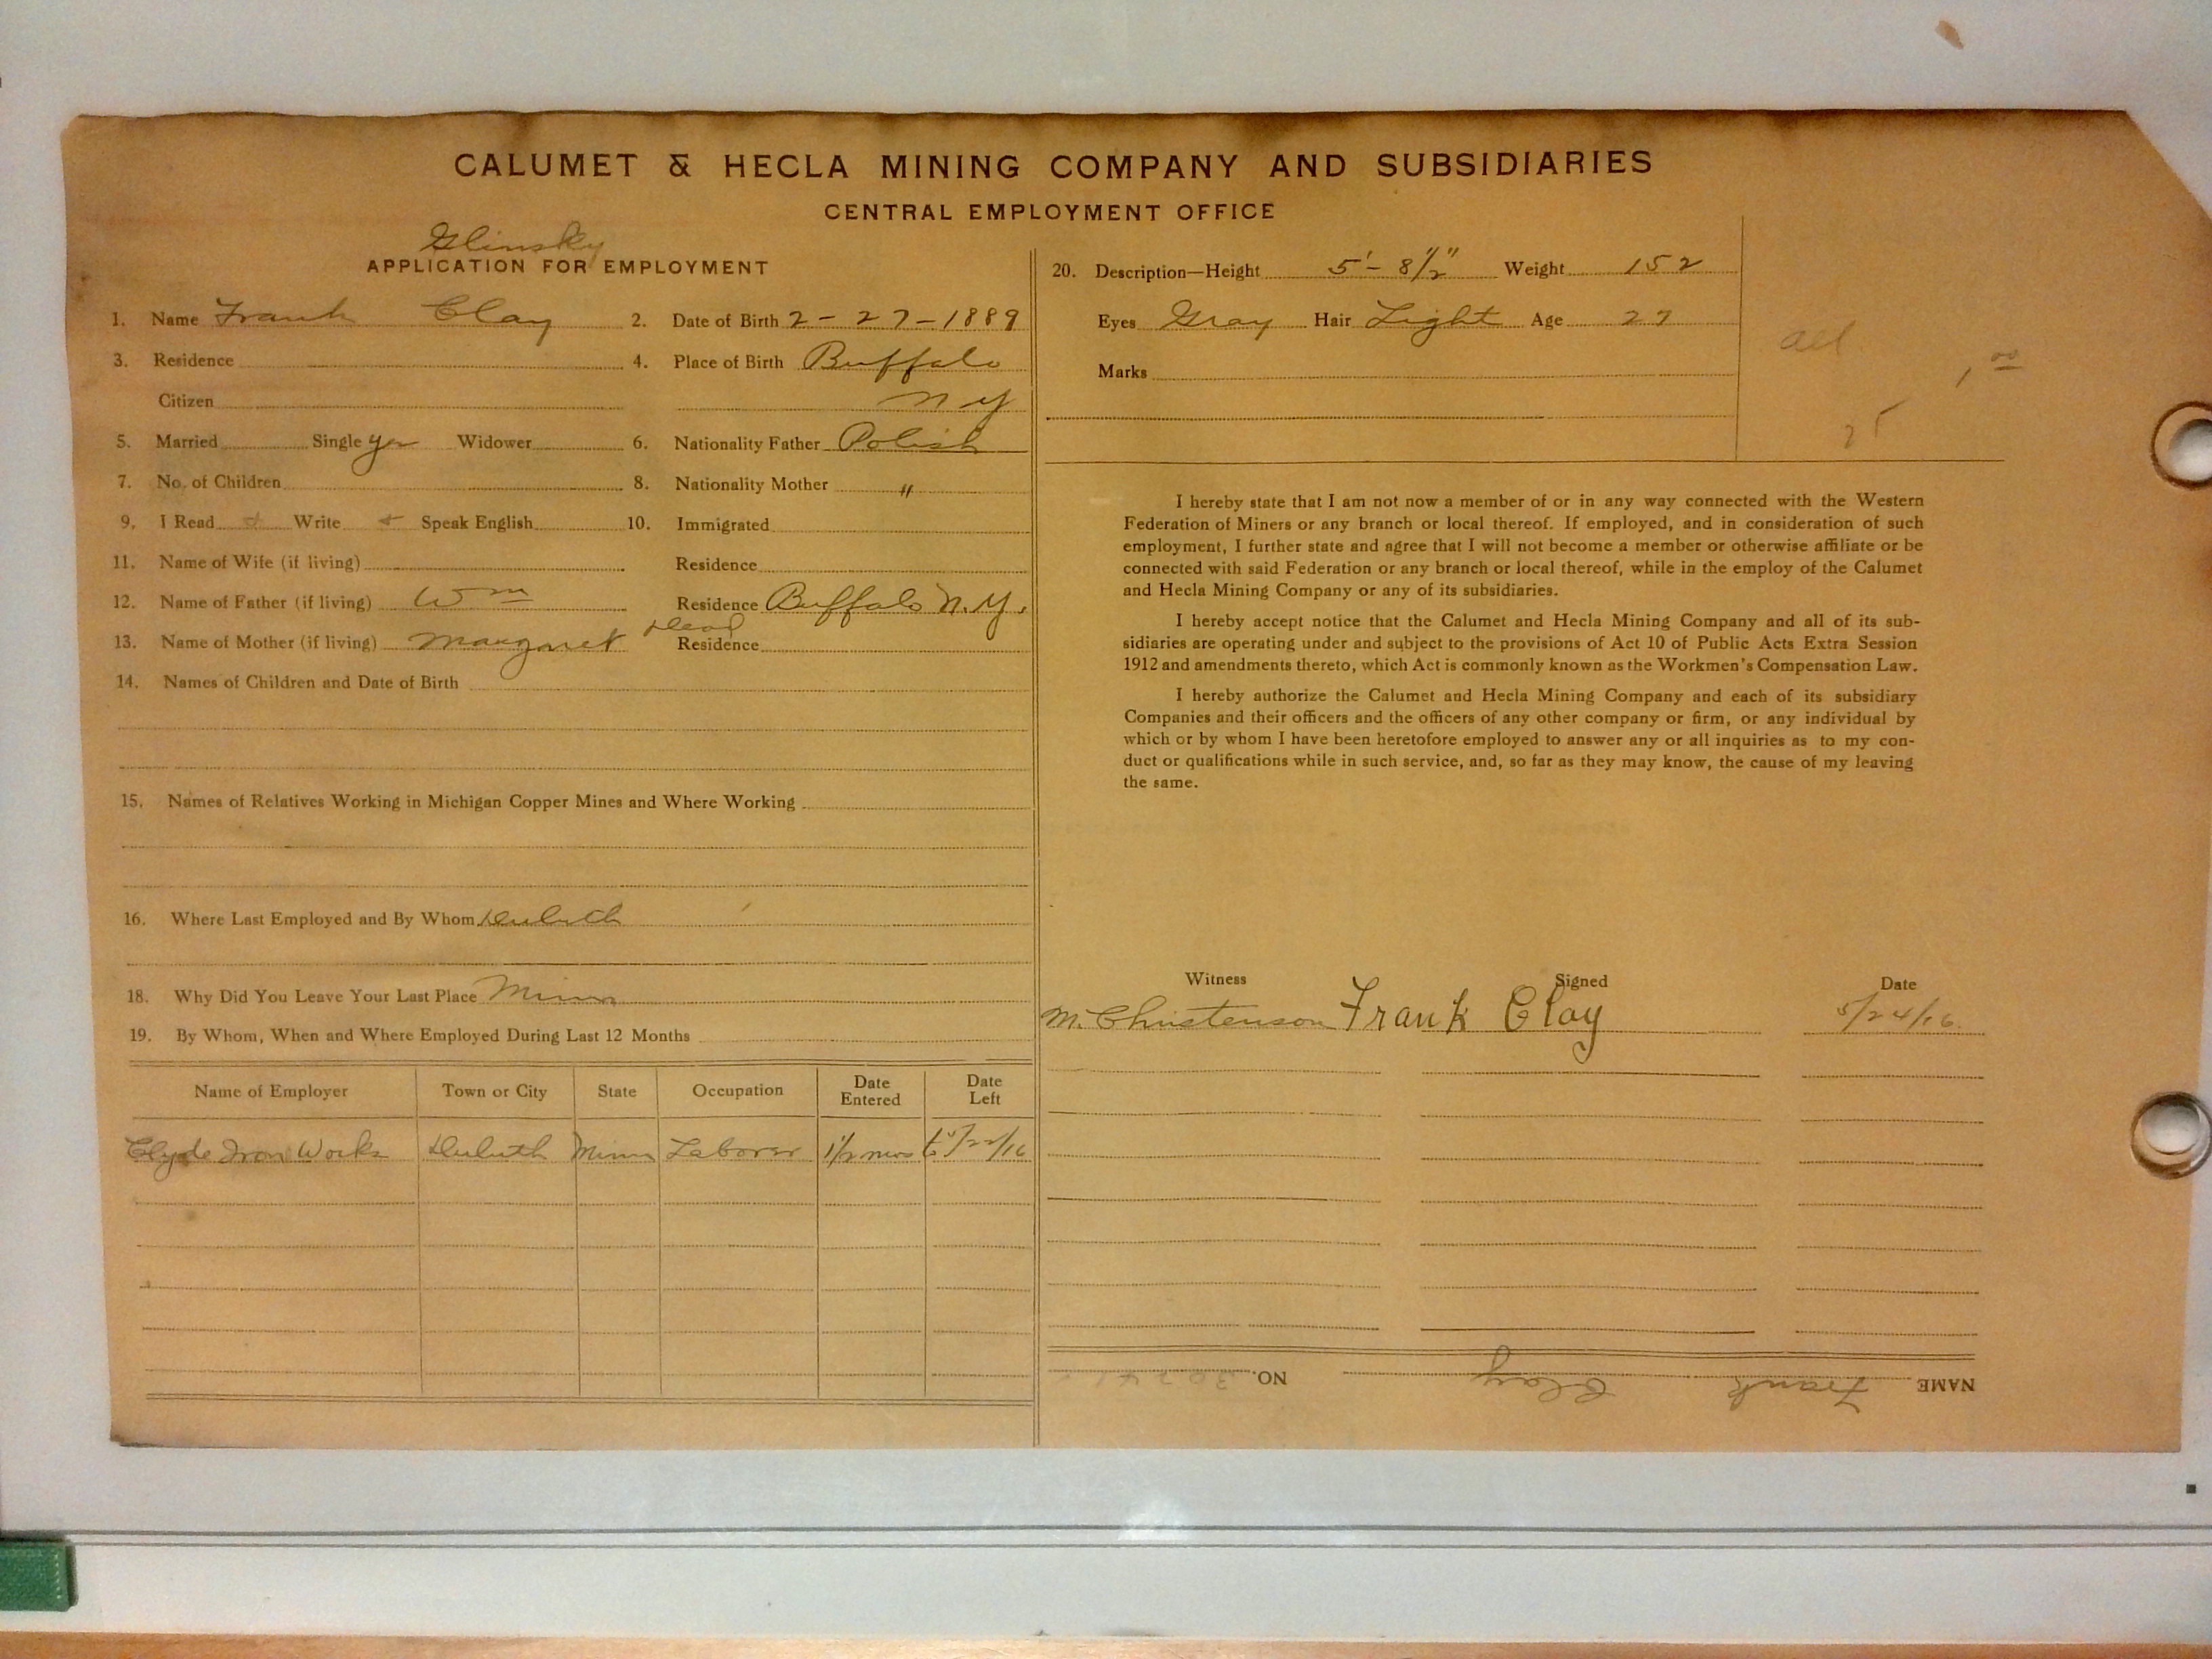 CALUMET & HECLA MINING COMPANY AND SUBSIDIARIES
CENTRAL EMPLOYMENT OFFICE
Glinsky
APPLICATION FOR EMPLOYMENT
1. Name Frank Clay 2. Date of Birth 2-27-1889
3. Residence 4. Place of Birth Buffalo
Citizen N Y
5. Married Single yes Widower 6. Nationality Father Polish
7. No. of Children 8. Nationality Mother "
9. I Read Write Speak English 10. Immigrated
11. Name of Wife (if living) Residence
12. Name of Father (if living) Wm Residence Buffalo N.Y.
13. Name of Mother (if living) Margaret Dead Residence
14. Names of Children and Date of Birth
15. Names of Relatives Working in Michigan Copper Mines and Where Working
16. Where Last Employed and By Whom Duluth
18. Why Did You Leave Your Last Place Minn
19. By Whom, When and Where Employed During Last 12 Months
Name of Employer Town or City State Occupation Date Entered Date Left
Clyde Iron Works Duluth Minn Laborer 1 1/2 mos to 5/22/16
20. Description—Height 5'- 8 1/2" Weight 152
Eyes Gray Hair Light Age 27
Marks
1 00
25
I hereby state that I am not now a member of or in any way connected with the Western
Federation of Miners or any branch or local thereof. If employed, and in consideration of such
employment, I further state and agree that I will not become a member or otherwise affiliate or be
connected with said Federation or any branch or local thereof, while in the employ of the Calumet
and Hecla Mining Company or any of its subsidiaries.
I hereby accept notice that the Calumet and Hecla Mining Company and all of its sub-
sidiaries are operating under and subject to the provisions of Act 10 of Public Acts Extra Session
1912 and amendments thereto, which Act is commonly known as the Workmen's Compensation Law.
I hereby authorize the Calumet and Hecla Mining Company and each of its subsidiary
Companies and their officers and the officers of any other company or firm, or any individual by
which or by whom I have been heretofore employed to answer any or all inquiries as to my con-
duct or qualifications while in such service, and, so far as they may know, the cause of my leaving
the same.
Witness Signed Date
M. Christenson Frank Clay 5/24/16
NAME Frank Clay NO.